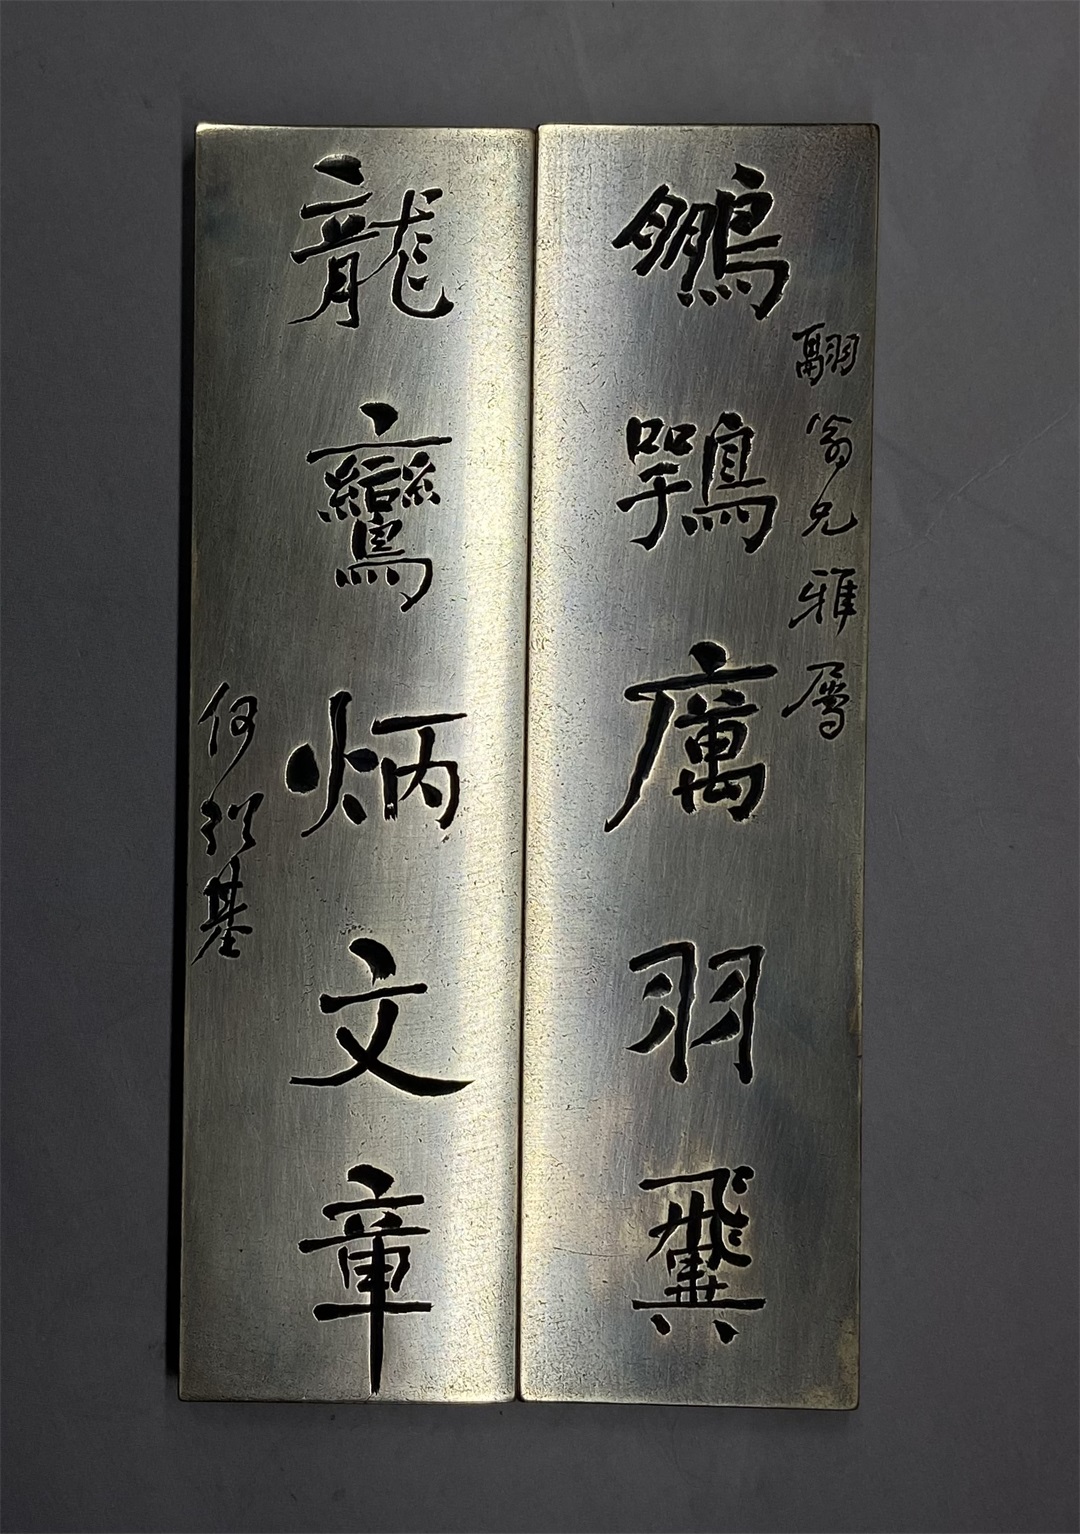 翮翁兄雅屬
鵬鶚厲羽翼
龍鸞炳文章
何紹基